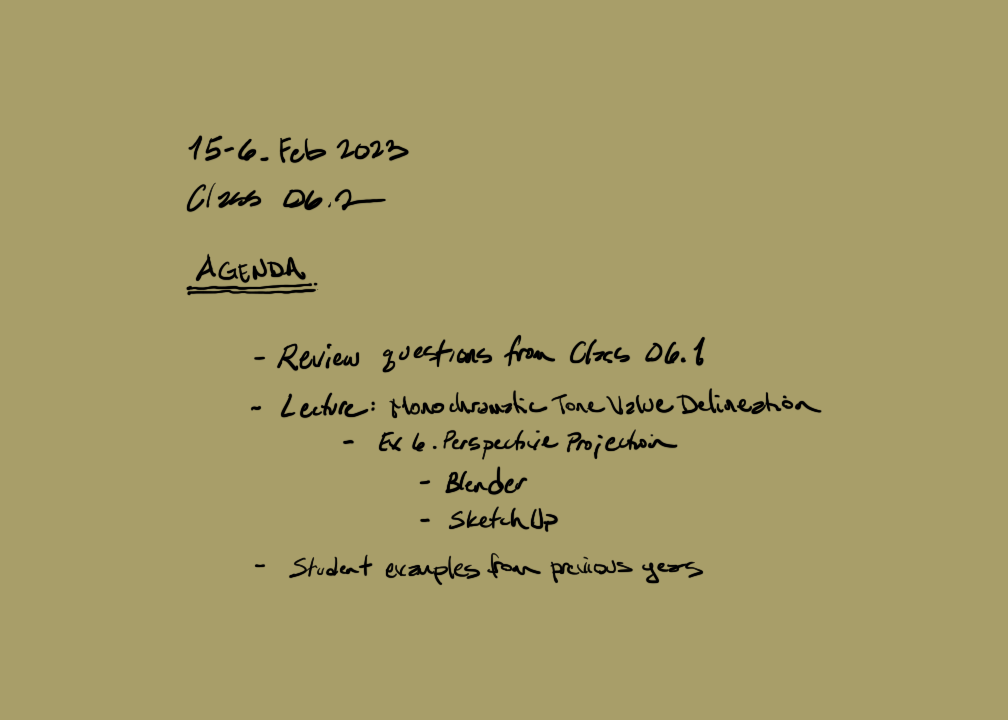 15-6. Feb 2023
Class 06.2
AGENDA
- Review questions from Class 06.1
- Lecture: Monochromatic Tone Value Delineation
- Ex 6. Perspective Projection
- Blender
- SketchUp
- Student examples from previous years